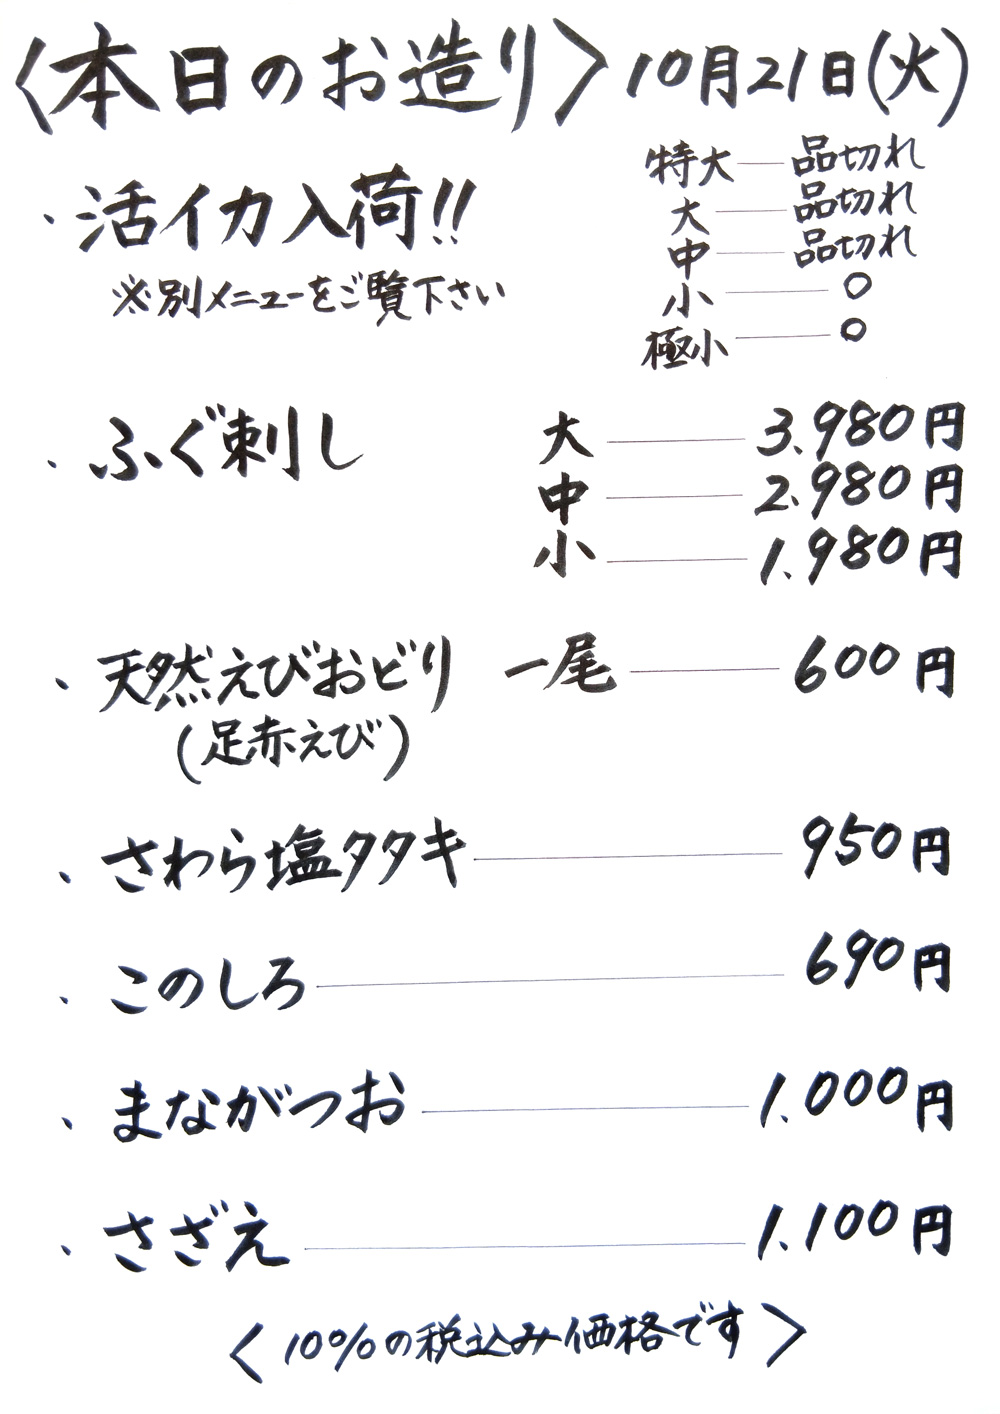 〈本日のお造り〉10月21日(火)
・活イカ入荷!!
※別メニューをご覧下さい
特大 品切れ
大 品切れ
中 品切れ
小 ○
極小 ○
・ふぐ刺し 大 3.980円
中 2.980円
小 1.980円
・天然えびおどり 一尾 600円
(足赤えび)
・さわら塩タタキ 950円
・このしろ 690円
・まながつお 1.000円
・さざえ 1.100円
〈10%の税込み価格です〉